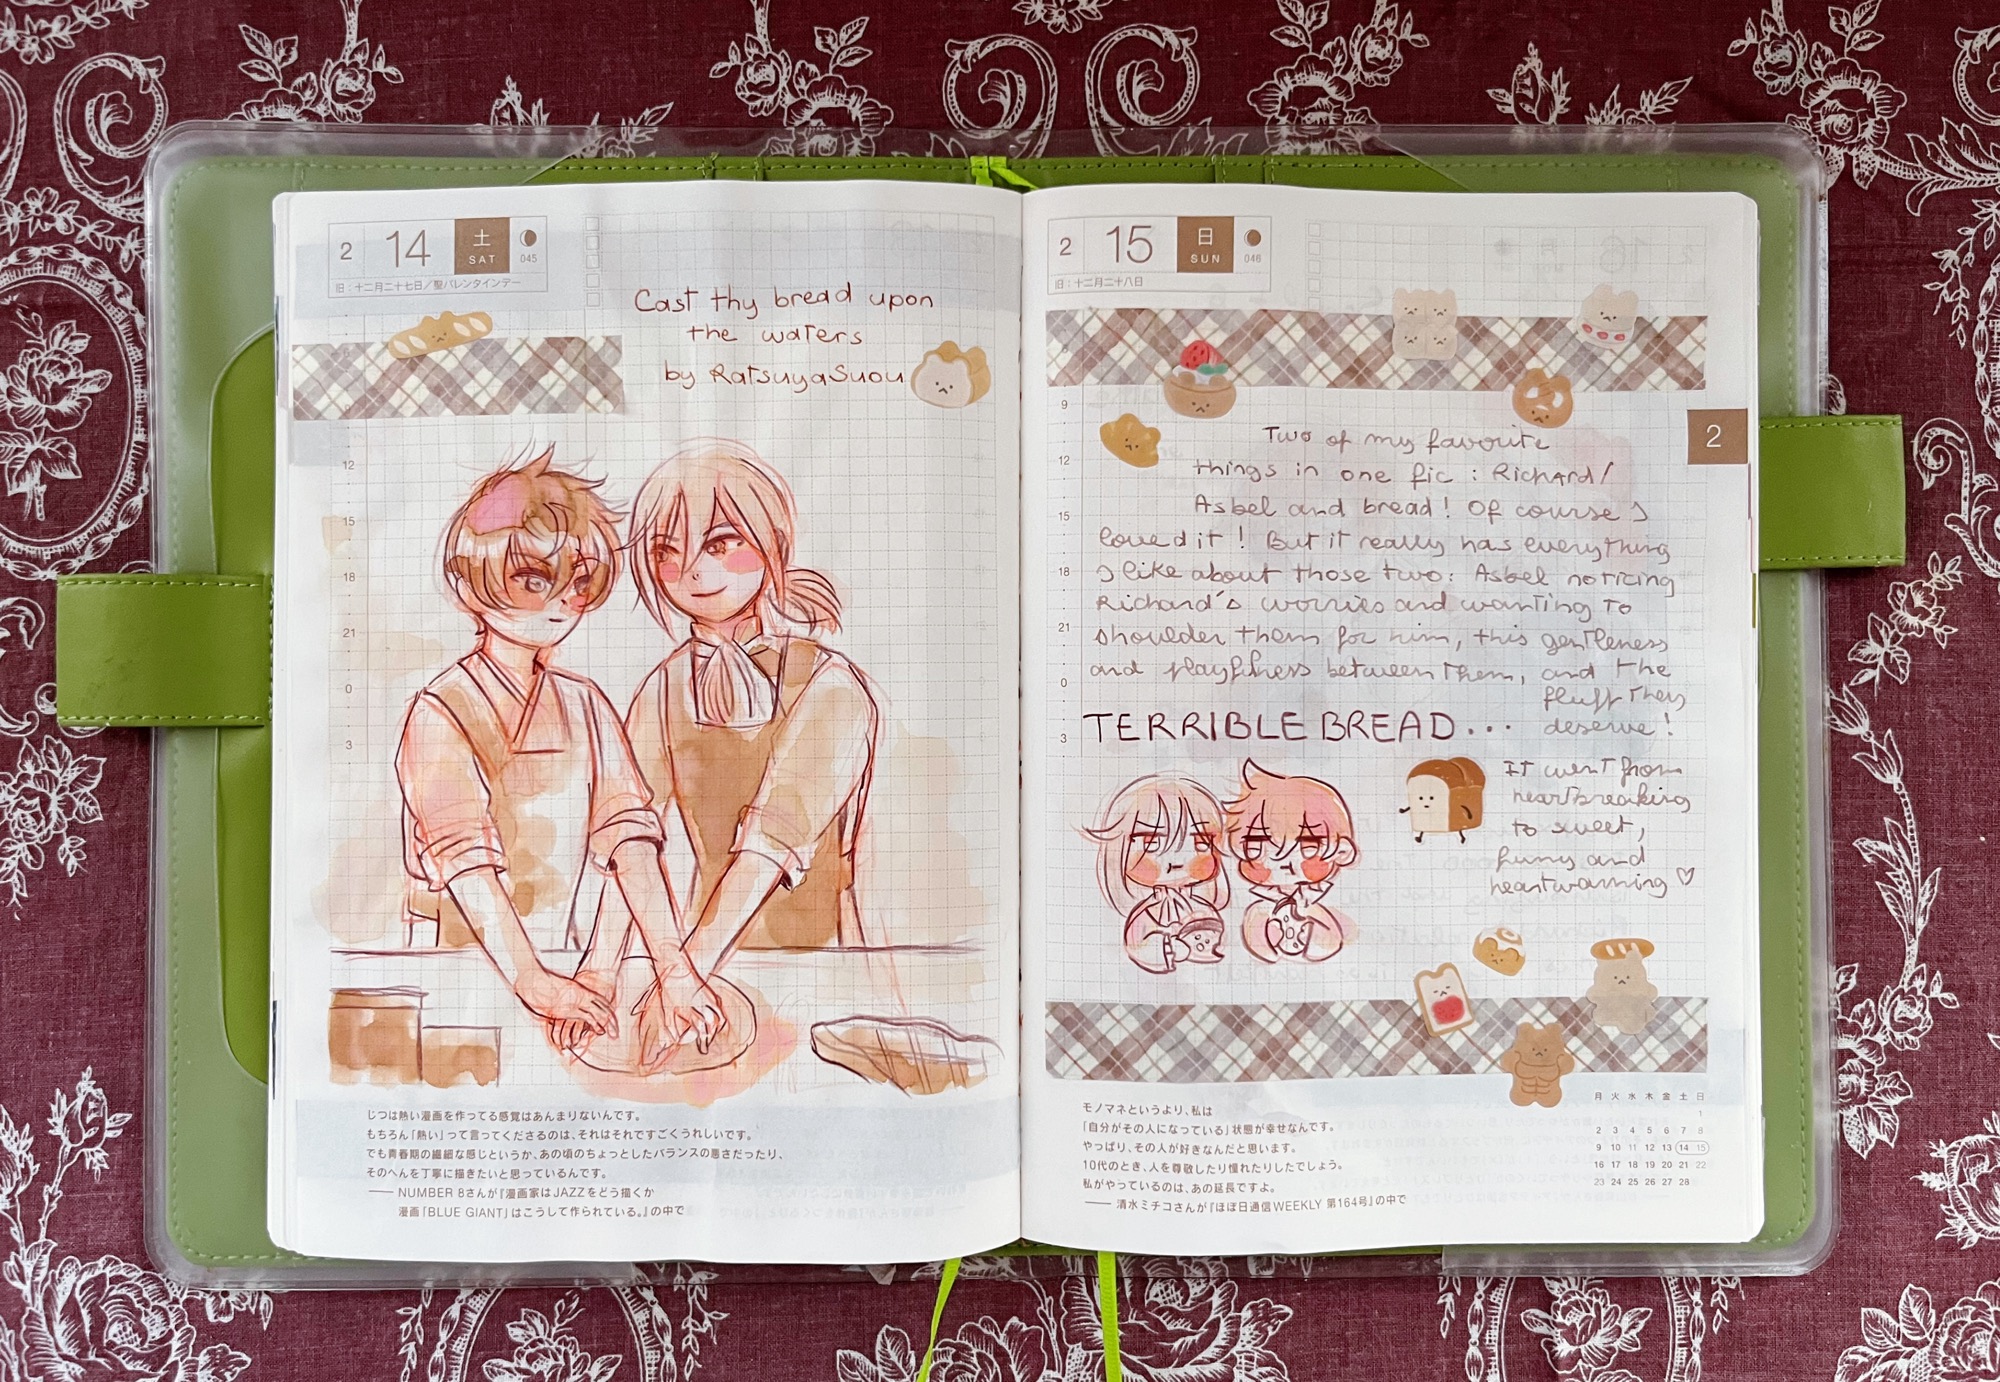 2 14 土 SAT 045
旧：十二月二十七日／聖バレンタインデー
Cast thy bread upon
the waters
by RatsuyaSuou
9
12
15
18
21
0
3
じつは熱い漫画を作ってる感覚はあんまりないんです。
もちろん「熱い」って言ってくださるのは、それはそれですごくうれしいです。
でも青春期の繊細な感じというか、あの頃のちょっとしたバランスの悪さだったり、
そのへんを丁寧に描きたいと思っているんです。
── NUMBER 8さんが『漫画家はJAZZをどう描くか
漫画「BLUE GIANT」はこうして作られている。』の中で
2 15 日 SUN 046
旧：十二月二十八日
2
9
12
15
18
21
0
3
Two of my favorite
things in one fic : Richard/
Asbel and bread! Of course I
loved it! But it really has everything
I like about those two: Asbel noticing
Richard's worries and wanting to
shoulder them for him, this gentleness
and playfulness between them, and the
fluff they
deserve!
TERRIBLE BREAD...
It went from
heartbreaking
to sweet,
funny and
heartwarming ♡
モノマネというより、私は
「自分がその人になっている」状態が幸せなんです。
やっぱり、その人が好きなんだと思います。
10代のとき、人を尊敬したり憧れたりしたでしょう。
私がやっているのは、あの延長ですよ。
── 清水ミチコさんが『ほぼ日通信WEEKLY 第164号』の中で
月 火 水 木 金 土 日
1
2 3 4 5 6 7 8
9 10 11 12 13 14 15
16 17 18 19 20 21 22
23 24 25 26 27 28